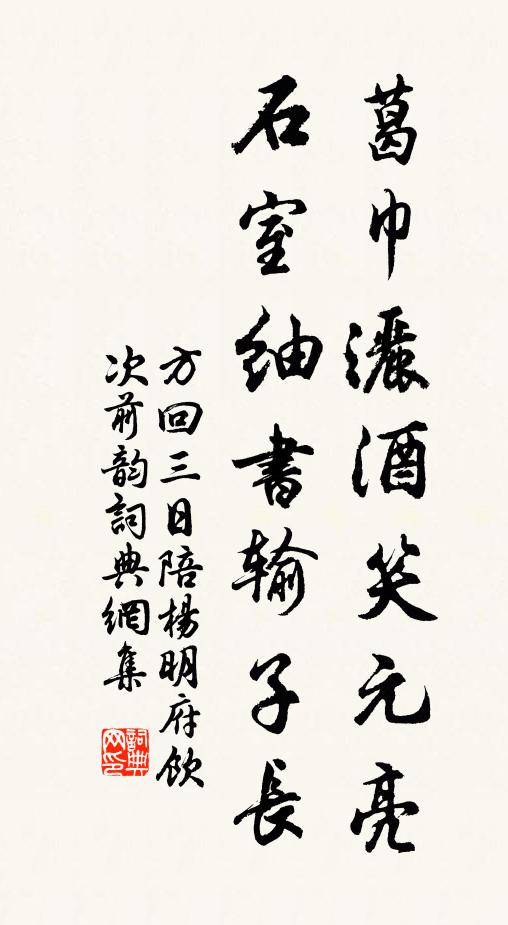 葛巾灑酒笑元亮
石室紬書輸子長
方回三日陪楊明府飲
次前韵詞典網集
詞典
网印